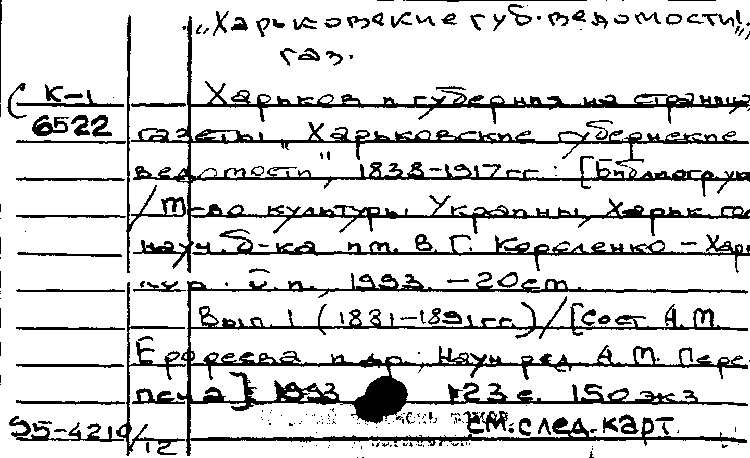 „Харьковские губ. ведомости",
газ.
К-1
Харьков и губерния на страница
6522
газеты „Харьковские губернские
ведомости", 1838-1917гг.: [Библиогр. ук
/ М-во культуры Украины, Харьк. гос
науч. б-ка им. В. Г. Короленко – Хар
б. и., 1993. – 20см.
Вып. 1 (1881-1891гг.) / [Сост. А. М.
Ерофеева и др.; Науч. ред. А. М. Пере
печа]. 1993 123 с. 150 экз
см. след. карт.
95-4210/12